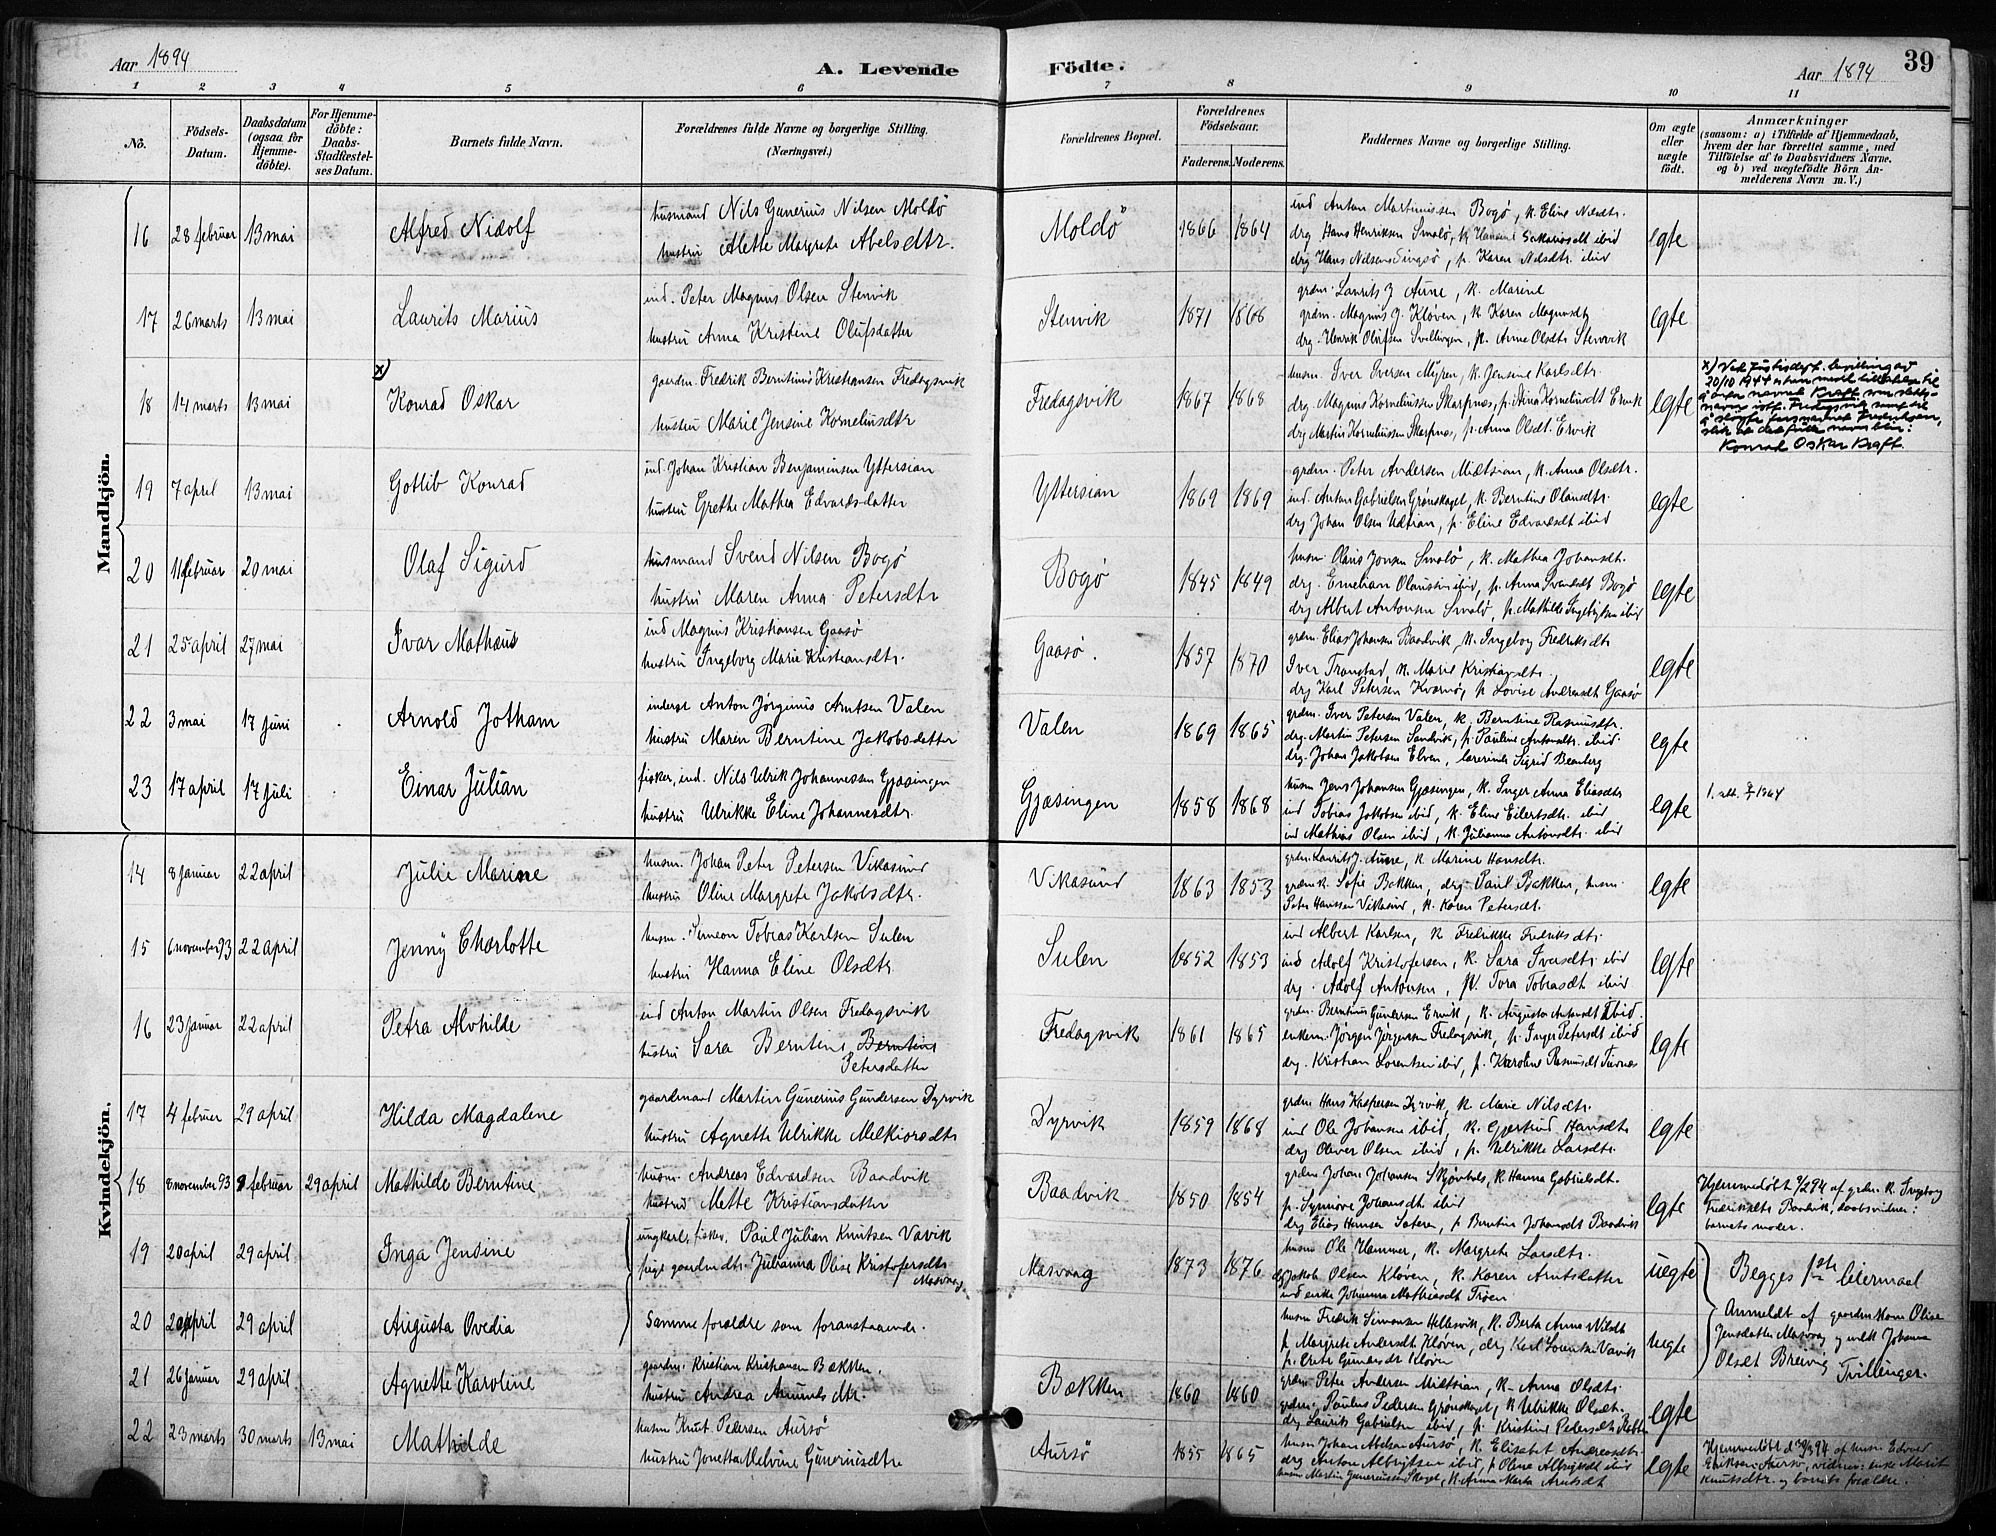 Aar 1894
A. Levende
Födte.
Aar 1894
39
1 2 3 4 5 6 7 8 9 10 11
No.
Födsels-Datum.
Daabsdatum (ogsaa for Hjemme-döbte).
For Hjemme-döbte: Daabs-Stadfæstel-ses Datum.
Barnets fulde Navn.
Forældrenes fulde Navne og borgerlige Stilling. (Næringsvei.)
Forældrenes Bopæl.
Forældrenes Födselsaar.
Faderens. Moderens.
Faddernes Navne og borgerlige Stilling.
Om ægte eller uægte födt.
Anmærkninger
(saasom: a) i Tilfælde af Hjemmedaab, hvem der har forrettet samme, med Tilföielse af to Daabsvidners Navne. og b) ved uægtefödte Börn An-melderens Navn m. V.)
Mandkjön.
16 28 februar 13 mai Alfred Nidolf
husmand Nils Gunerius Nilsen Moldö
hustru Alette Margrete Abelsdtr.
Moldö 1866 1864
ind Anton Martinussen Bogø, k. Eline Nilsdtr.
drg Hans Henriksen Smalø, k Hansine Sakariasdt ibid
drg Hans Nilsen Singsø, p. Karen Nilsdtr. ibid
egte
17 26 marts 13 mai Laurits Marius
ind. Peter Magnus Olsen Stenvik
hustru Anna Kristine Olufsdatter
Stenvik 1871 1868
grdm. Laurits J Aune, k. Marine
grdm. Magnus J. Kløven, k Karen Magnusdtr
drg. Henrik Olufsen Svellingen, p. Anne Olsdtr Stenvik
egte
x)
18 14 marts 13 mai Konrad Oskar
gaardm. Fredrik Berntinus Kristiansen Fredagsvik
hustru Marie Jensine Korneliusdtr
Fredagsvik 1867 1868
husm. Iver Iversen Myren, k. Jensine Karlsdtr.
drg. Magnus Korneliussen Skarpnes, p. Nina Kornelinsdt Ervik
drg Martin Kornelinssen Skarpnes, p. Anna Olsdt. Ervik
egte
x) Ved Justisdept. bevilling av
20/10 1944 er han meddelt tillatelse til
å anta navnet Kraft som slekts-
navn istf. Fredagsvik samt til
å sløyfe farsnavnet Fredriksen,
slik at det fulle navn blir:
Konrad Oskar Kraft.
19 7 april 13 mai Gotlib Konrad
ind. Johan Kristian Benjaminsen Yttersian
hustru Grethe Mathea Edvardsdatter
Yttersian 1869 1869
grdm. Peter Andersen Midtsian, k. Anna Olsdtr.
ind. Anton Gabrielsen Grønskaget, k. Berntine Olausdtr.
drg Johan Olsen Udtian, p. Eline Edvardsdt ibid
egte
20 11 februar 20 mai Olaf Sigurd
husmand Svend Nilsen Bogø
hustru Maren Anna Petersdtr
Bogø 1845 1849
husm. Olaus Jonsen Smalø, k. Mathea Johansdt.
drg. Emelian Olaussen ibid, p. Anna Svendsdt Bogø
drg Albert Antonsen Smalø, p. Mathilde Ingebrigtsen ibid
egte
21 25 april 27 mai Ivar Mathæus
ind Magnus Kristiansen Gaasø
hustru Ingeborg Marie Kristiansdtr.
Gaasø. 1857 1870
grdm. Elias Johansen Baadvik, k. Ingeborg Fredriksdtr
Iver Transtad, k. Marie Kristiansdtr.
drg Karl Petersen Kværnø, p Lovise Andreasdt Gaasø
egte
22 3 mai 17 juni Arnold Jotham
inderst Anton Jørginus Arntsen Valen
hustru Maren Berntine Jakobsdatter
Valen 1869 1865
grdm. Iver Petersen Valen, k. Berntine Rasmusdtr.
drg. Martin Petersen Sandvik, p. Pauline Antonsdtr. ibid
drg. Johan Jakobsen Elven, lærerinde Sigrid Beenberg
egte
23 17 april 17 juli Einar Julian
fisker, ind. Nils Ulrik Johannessen Gjæsingen
hustru Ulrikke Eline Johannesdtr.
Gjæsingen 1858 1868
husm Jens Johansen Gjæsingen, k. Inger Anna Eliasdtr
ind Tobias Jakobsen ibid, k. Eline Eilertsdtr. ibid
ind Mathias Olsen ibid, k. Julianna Antonsdtr. ibid
egte
Kvindekjön.
14 8 januar 22 april Julie Marine
husm. Johan Peter Petersen Vikasund
hustru Oline Margrete Jakobsdtr.
Vikasund 1863 1853
grdm. Laurits J. Aune, k. Marine Hansdtr.
grdmk. Sofie Bakken, drg. Paul Bakken, husm.
Peter Hanssen Vikasund, k. Karen Petersdt.
egte
15 6 november 93 22 april Jenny Charlotte
husm. Simeon Tobias Karlsen Sulen
hustru Hanna Eline Olsdtr.
Sulen 1852 1853
ind Albert Karlsen, k Fredrikke Fredriksdtr
ind Adolf Kristofersen, k. Sara Iversdtr. ibid
drg. Adolf Antonsen, p. Tora Tobiasdt ibid
egte
16 23 januar 22 april Petra Alvhilde
ind Anton Martin Olsen Fredagsvik
hustru Sara Berntine Berntine
Petersdatter
Fredagsvik 1861 1865
grdm. Berntinus Gundersen Ervik, k. Augusta Antondt ibid.
enkem. Jørgen Jørgensen Fredagsvik, p. Inger Petersdt ibid
drg. Kristian Lorentsen ibid, p. Karoline Rasmusdt Turnes
egte
17 4 februar 29 april Hilda Magdalene
gaardmand Martin Gunerius Gundersen Dyrvik
hustru Agnette Ulrikke Melkiorsdtr
Dyrvik 1859 1868
grdm. Hans Kaspersen Dyrvik, k. Marie Nilsdtr.
ind Ole Johansen ibid, k. Gjertrud Hansdtr
drg Oliver Olsen ibid, p. Ulrikke Larsdtr.
egte
18 8 november 93 9 februar 29 april Mathilde Berntine
husm. Andreas Edvardsen Baadvik
hustru Mette Kristiansdatter
Baadvik 1850 1854
grdm Johan Johansen Skjønhals, k. Hanna Gabrielsdt.
p. Synnøve Johansdt ibid
drg Elias Hansen Sæteren, p Berntine Johansdt Baadvik
egte
Hjemmedöbt 9/2 94 af grdm. k. Ingeborg
Fredriksdtr Baadvik, daabsvidner:
barnets moder.
19 20 april 29 april Inga Jensine
ungkarl, fisker, Paul Julian Knutsen Vavik
pige gaardmdtr. Julianna Olise Kristofersdtr
Masvaag
Masvaag 1873 1876
husm Ole Hammer, k. Margrete Larsdtr.
drg Jakob Olsen Kløven, k. Karen Arntsdatter
ind enke Johanna Mathiasdt Trøen
uegte
Begges 1ste leiermaal
20 20 april 29 april Augusta Ovedia
Samme forældre som foranstaaende.
husm Fredrik Simonsen Hellesvik, k. Berta Anna Nilsdt
p. Margrete Andersdt Kløven, drg Karl Lorentsen Vavik
p. Grete Gunersdt Kløven
uegte
Anmeldt af gaardmkone Olise
Jensdatter Masvaag og enke Johanna
Olsdt Breivig Tvillinger.
21 26 januar 29 april Agnette Karoline
gaardm. Kristian Kristiansen Bakken.
hustru Andrea Amundsdtr.
Bakken 1860 1860
grdm. Peter Andersen Midtsian, k. Anna Olsdtr.
grdm. Paulus Pedersen Grønskaget, k Ulrikke Olsdt.
drg Laurits Gabrielsen ibid, p. Kristine Pedersdtr
egte
22 23 marts 30 marts 13 mai Mathilde
husm Knut Pedersen Aursø
hustru Jonetta Melvine Guneriusdtr
Aursø 1855 1865
husm Johan Abelsen Aursø, k. Elisabet Andreasdtr
drg Anton Albrigtsen ibid, p Oline Albrigtsdt ibid
husm Martin Guneriussen Skaget, k. Anna Marta Arntsdt
egte
Hjemmedöbt d 30/3 94 af husm Edvard
Eriksen Aursø, vidner: enke Marit
Knutsdtr. og barnets forældre.